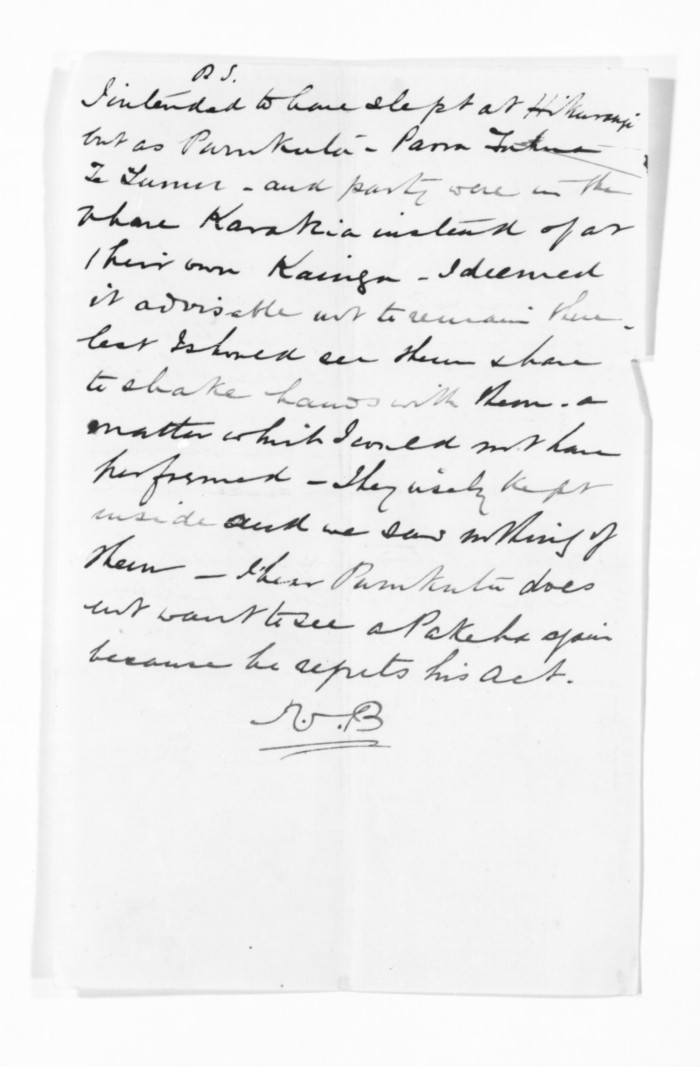 P S.
I intended to have slept at Hikurangi
but as Purukutu - Parra
Te Tumu - and party were in the
Whare Karakia instead of at
their own Kainga - I deemed
it advisable not to remain there -
lest I should see them & have
to shake hands with them - a
matter which I would not have
performed - They wisely kept
inside and we saw nothing of
them - I hear Purukutu does
not want to see a Pakeha again
because he regrets his act.